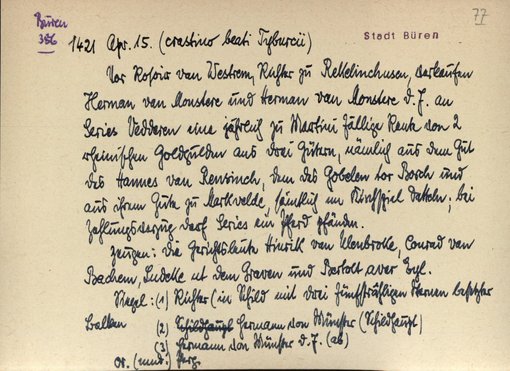 Büren
386
77
Stadt Büren
1421 Apr. 15. (crastino beati Tyburcii)
Vor Rosoir van Westrem, Richter zu Rekelinchusen, verkaufen
Herman van Monstere und Herman van Monstere d. J. an
Series Vedderen eine jährlich zu Martini fällige Rente von 2
rheinischen Goldgulden aus drei Gütern, nämlich aus dem Gut
des Hannes van Rensinch, dem des Gobelen tor Borch und
aus ihrem Gute zu Markvelde, sämtlich im Kirchspiel Datteln; bei
Zahlungsverzug darf Series ein Pferd pfänden.
Zeugen: die Gerichtsleute Hinrik van Ulenbrocke, Conrad van
Bachem, Ludeke ut dem Graven und Bertolt aver Gyl.
Siegel: (1) Richter (in Schild mit drei fünfstrahligen Sternen besetzter
Balken
(2) Hermann von Münster (Schildhaupt)
(3) Hermann von Münster d. J. (ab)
Or. (mnd.) Perg.